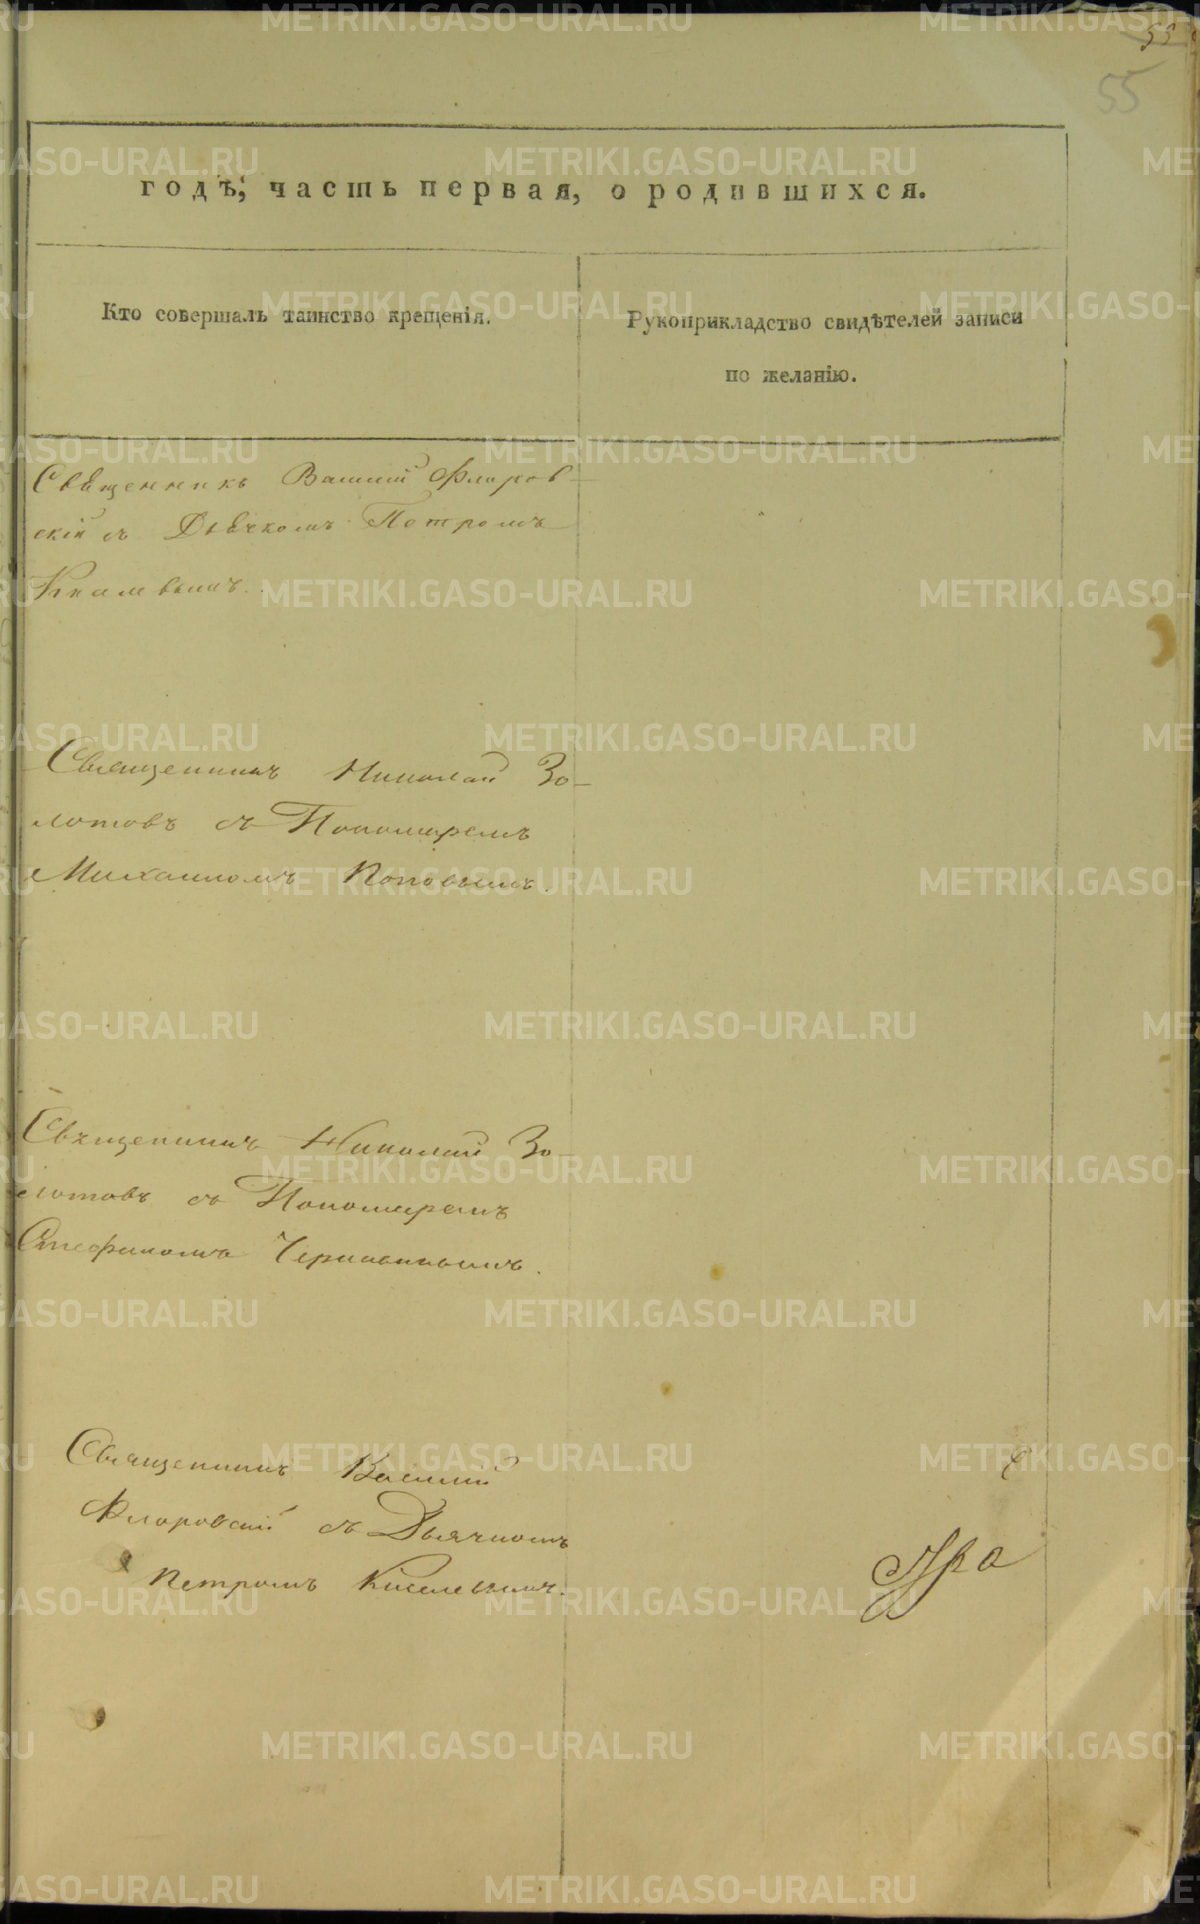 53
55
годѣ, часть первая, о родившихся.
Кто совершалъ таинство крещенія.
Рукоприкладство свидѣтелей записи
по желанію.
Священникъ Василій Флоров-
скій съ Дьячкомъ Петромъ
Киселевымъ.
Священникъ Николай Зо-
лотовъ съ Пономаремъ
Михаиломъ Поповымъ.
Священникъ Николай Зо-
лотовъ съ Пономаремъ
Стефаномъ
Священникъ Василій
Флоровскій съ Дьячкомъ
Петромъ Киселевымъ.
METRIKI.GASO-URAL.RU